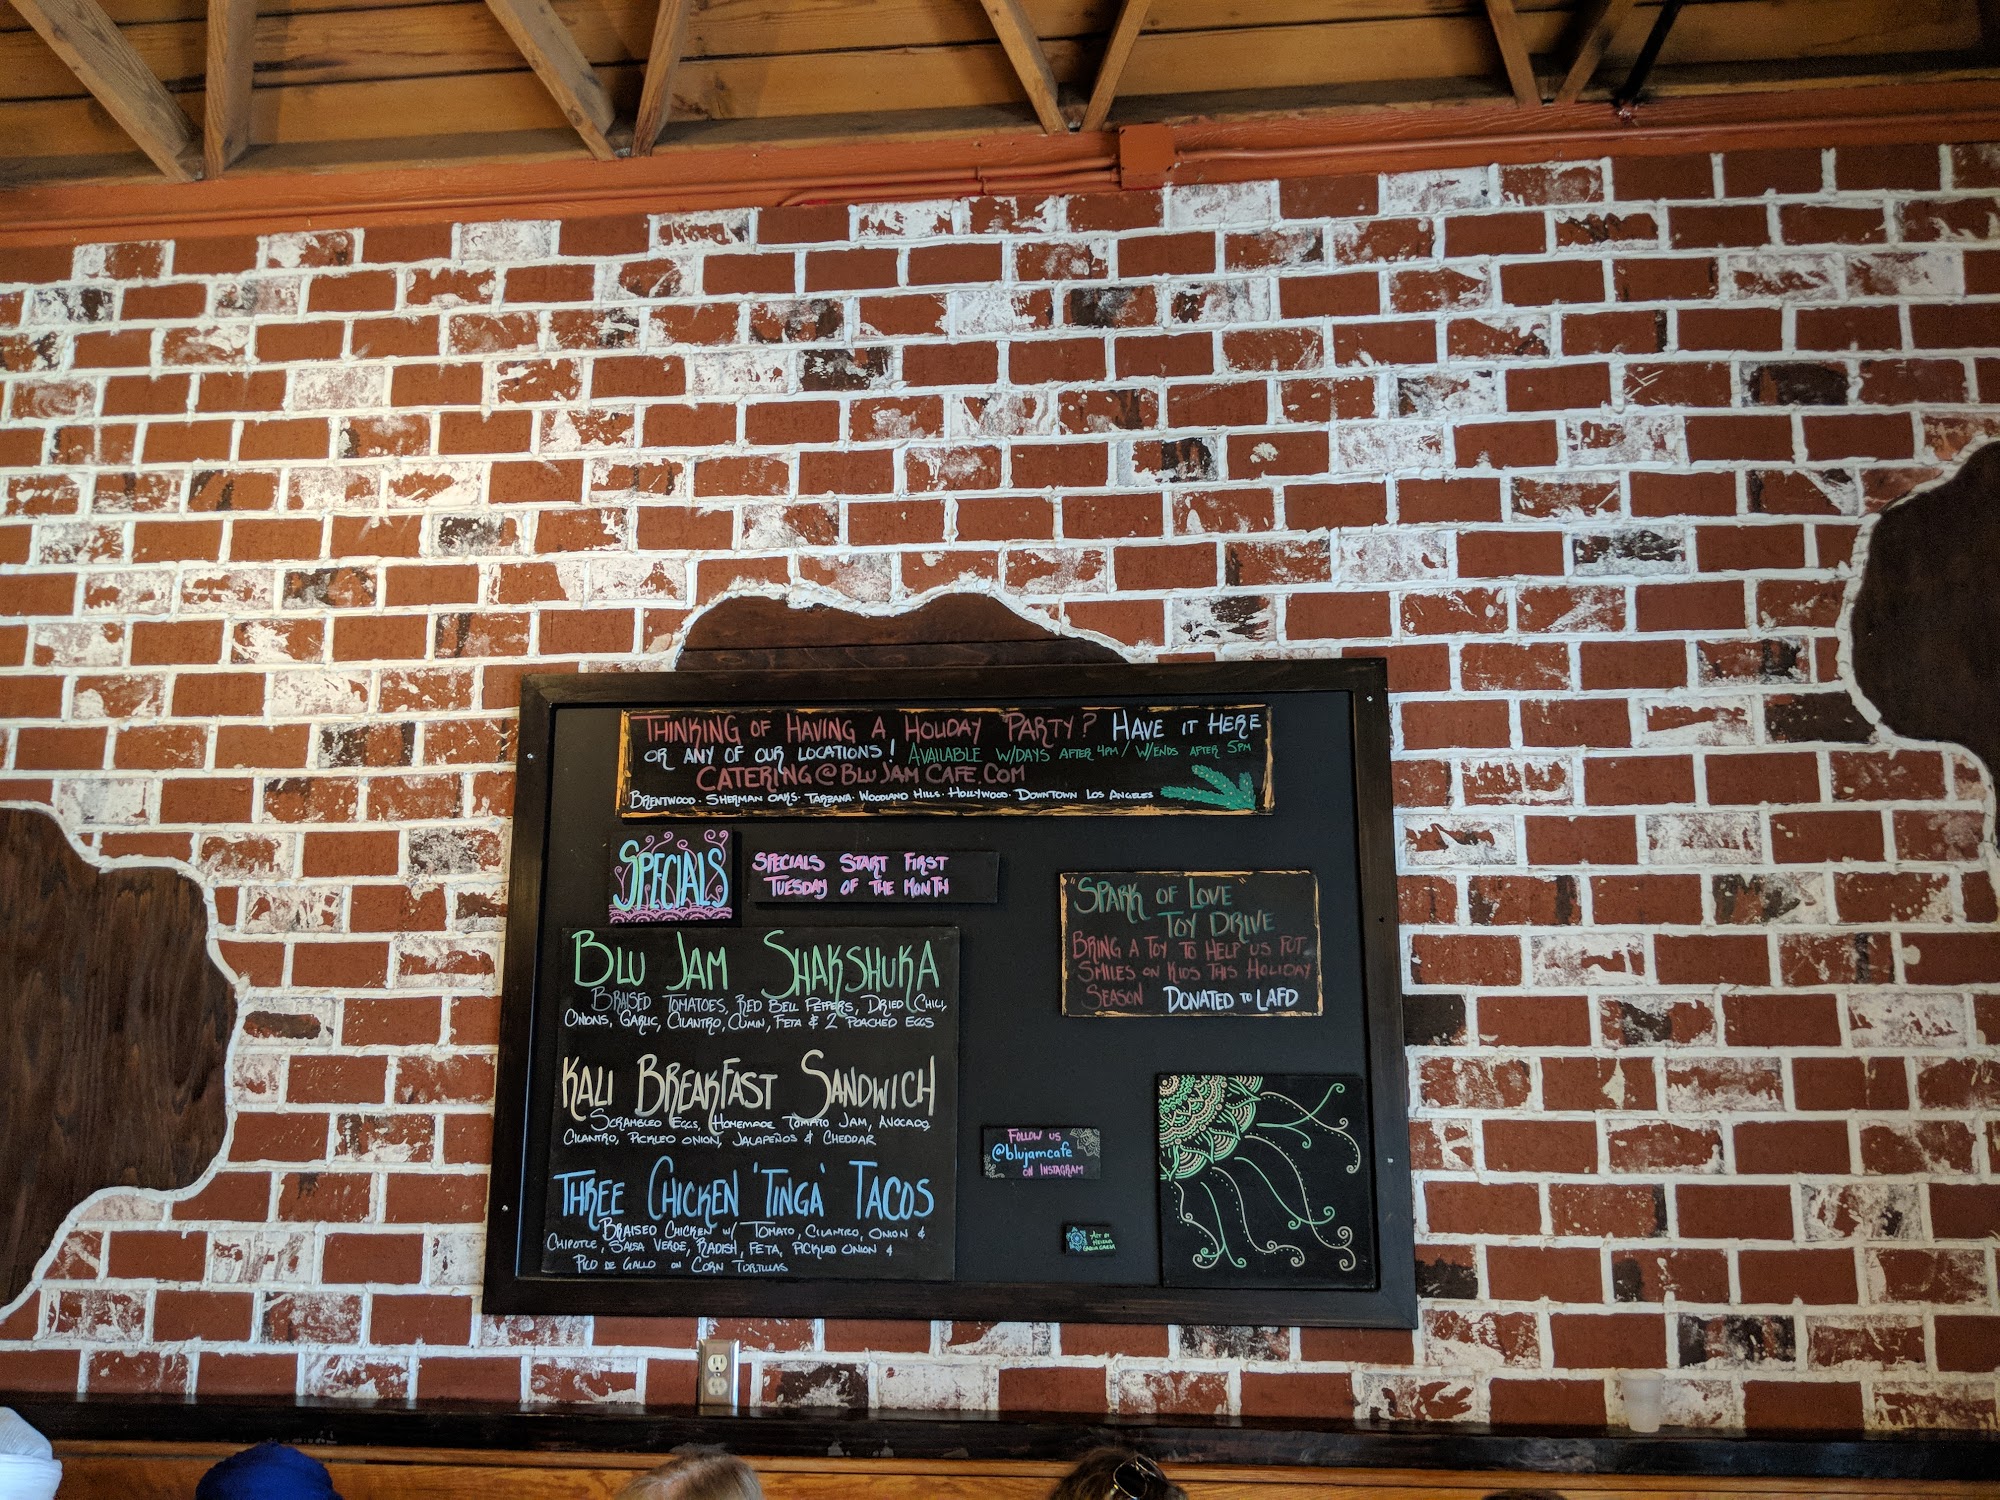 THINKING OF HAVING A HOLIDAY PARTY? HAVE IT HERE
OR ANY OF OUR LOCATIONS! AVAILABLE W/DAYS AFTER 4PM/ W/ENDS AFTER 5PM
CATERING@BLUJAMCAFE.COM
BRENTWOOD · SHERMAN OAKS · TARZANA · WOODLAND HILLS · HOLLYWOOD · DOWNTOWN LOS ANGELES
SPECIALS
SPECIALS START FIRST
TUESDAY OF THE MONTH
BLU JAM SHAKSHUKA
BRAISED TOMATOES, RED BELL PEPPERS, DRIED CHILI,
ONIONS, GARLIC, CILANTRO, CUMIN, FETA & 2 POACHED EGGS
KALI BREAKFAST SANDWICH
SCRAMBLED EGGS, HOMEMADE TOMATO JAM, AVOCADO,
CILANTRO, PICKLED ONION, JALAPEÑOS & CHEDDAR
THREE CHICKEN 'TINGA' TACOS
BRAISED CHICKEN W/ TOMATO, CILANTRO, ONION &
CHIPOTLE, SALSA VERDE, RADISH, FETA, PICKLED ONION &
PICO DE GALLO ON CORN TORTILLAS
"SPARK OF LOVE"
TOY DRIVE
BRING A TOY TO HELP US PUT
SMILES ON KIDS THIS HOLIDAY
SEASON DONATED TO LAFD
FOLLOW US
@blujamcafe
ON INSTAGRAM
ART BY